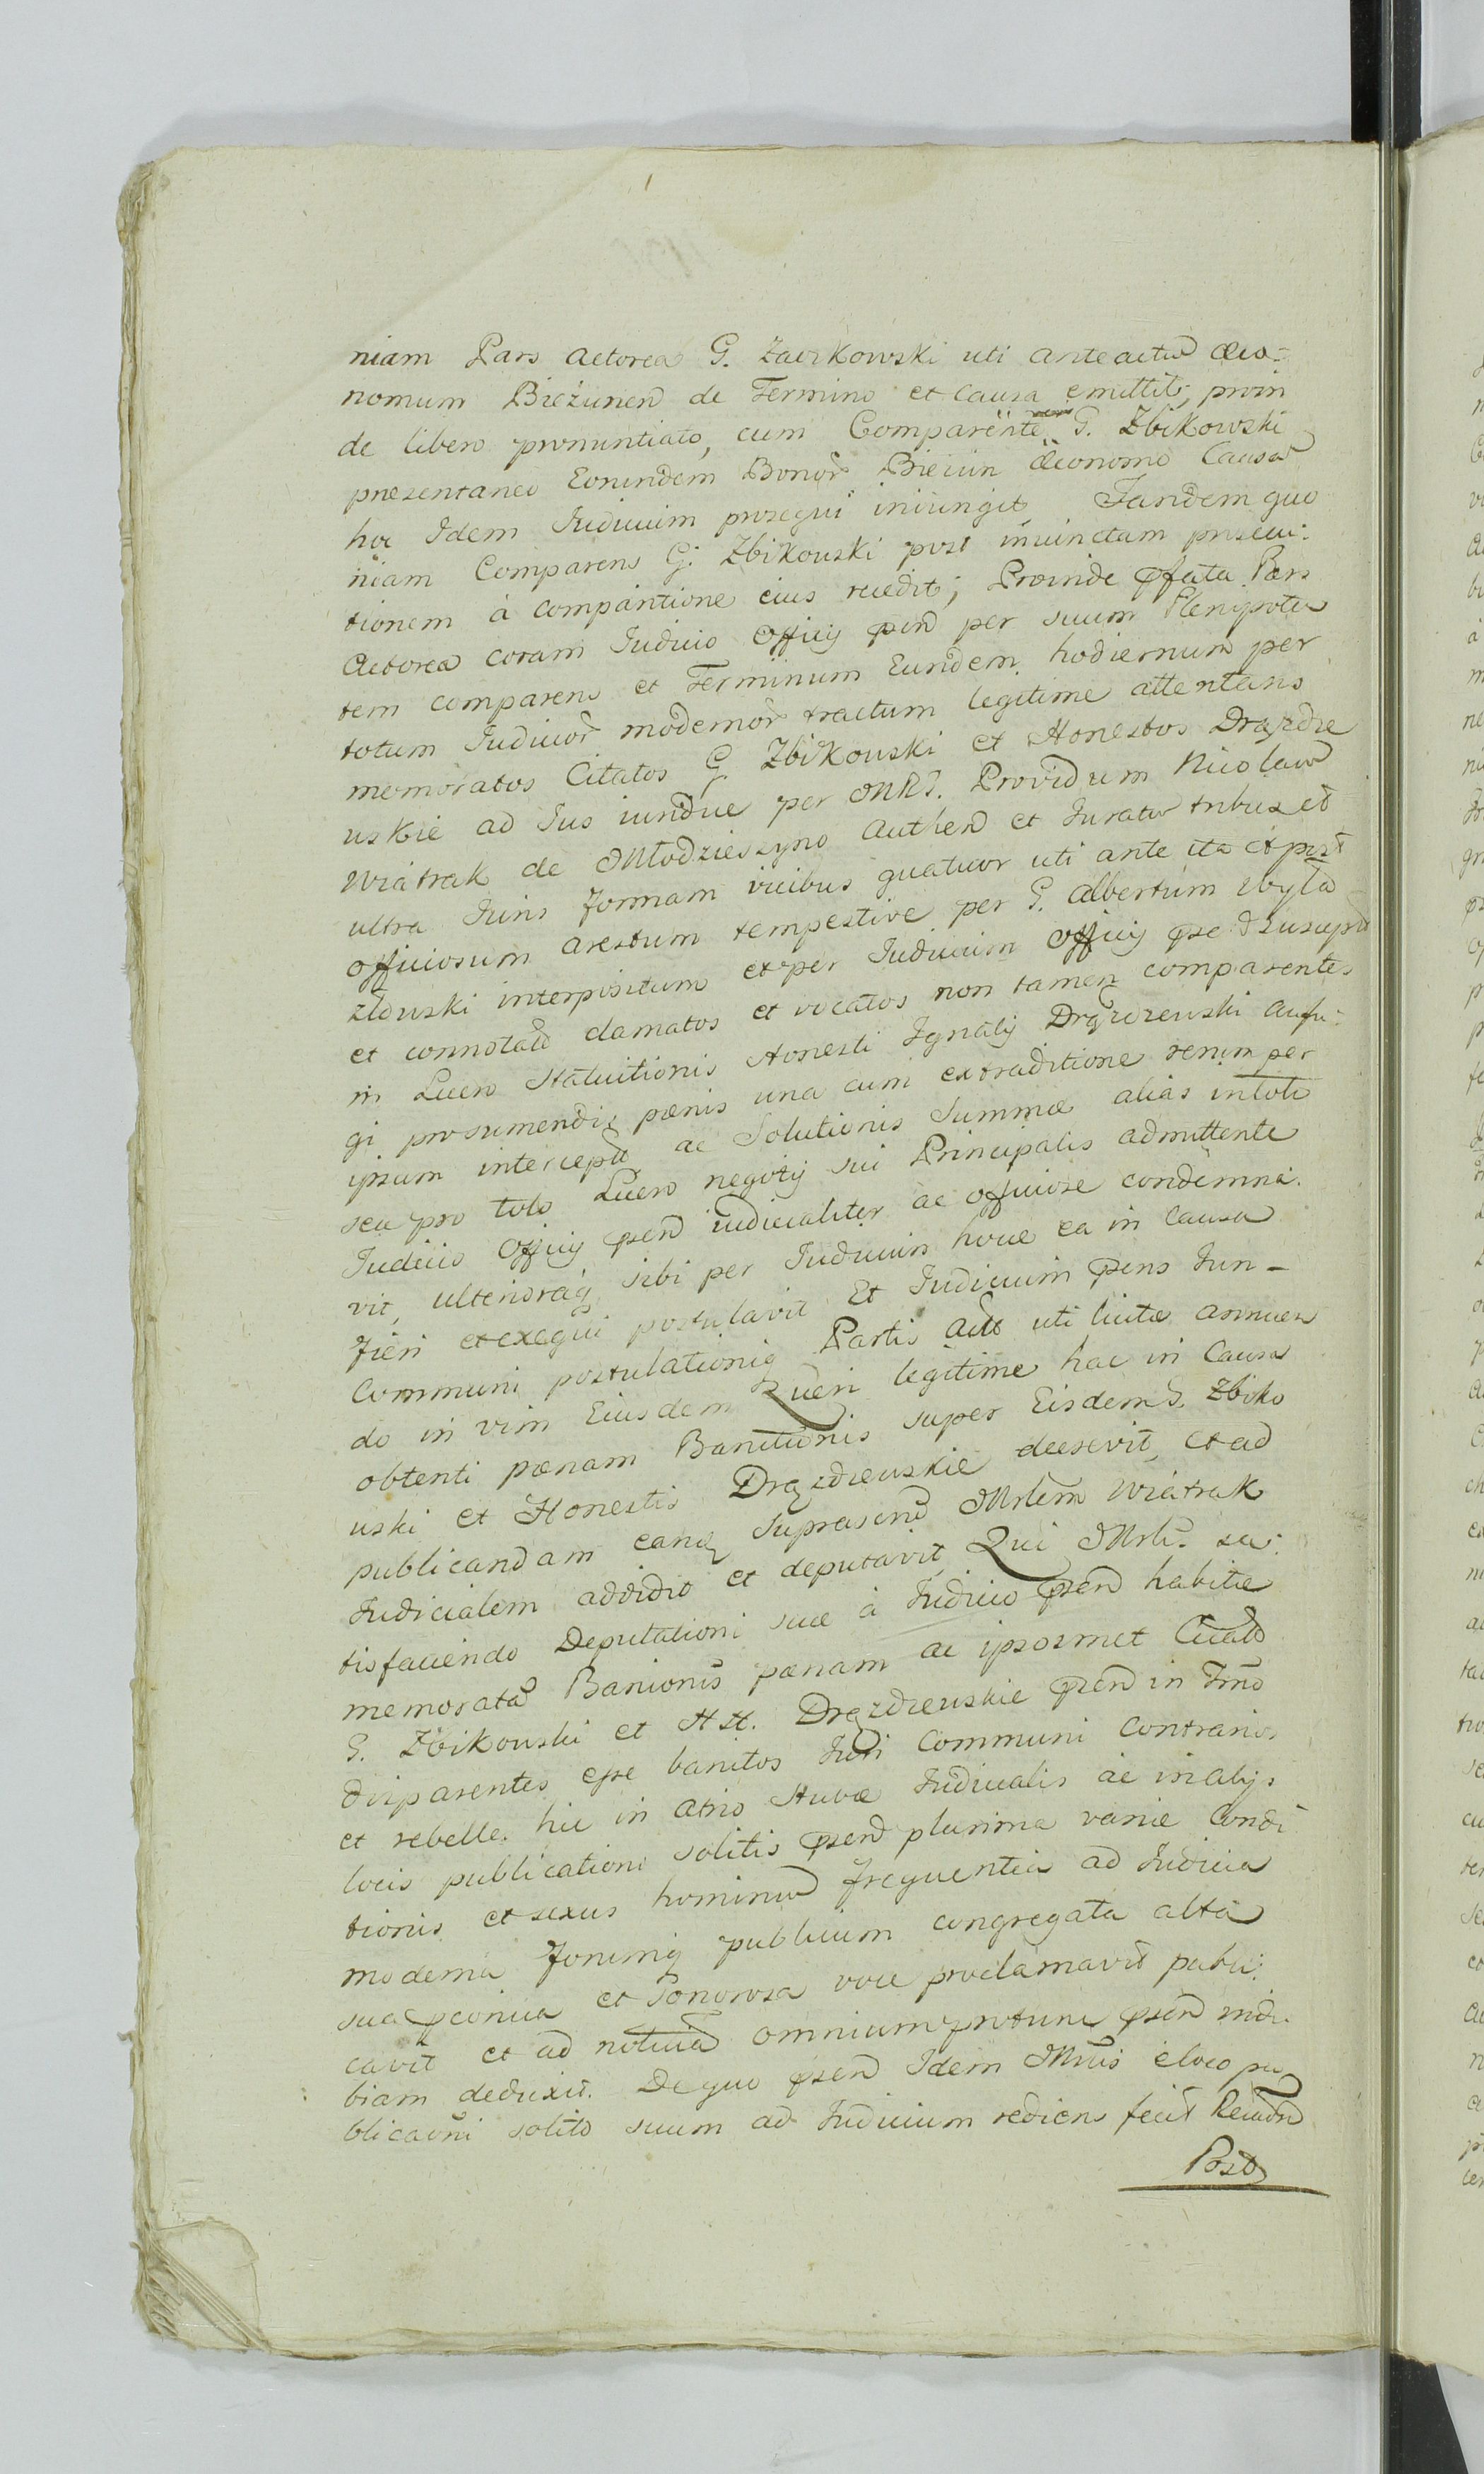 niam Pars Actorea G. Zavikowski uti anteactu Œco-
nomum Bieżunen de Termino et Causa emittit, proin
de libero pronuntiato, cum Comparente G. Zbikowski
presentaneo Eorundem Bonor Bieiun Œconomo Causa
hoc Idem Judicium prosequi iniungit. Tandem quo
niam Comparens G. Zbikowski post iniunctam prosecu-
tionem à comparitione eius recedit; Proinde pfata Pars
Actorea coram Judicio Officij psen per suum Plenipoten
tem comparens et Terminum Eundem hodiernum per
totum Judicior modernor tractum legitime attentans
memoratos Citatos G. Zbikowski et Honestos Drążdże
uskie ad Jus iurdue per MRJ. Providum Nicolaum
Wiatrak de Młodzieszyno Authen et Juratu tribus et
ultra Juris formam vicibus quatuor uti ante ita et post
officiosum arestum tempestive per G. Albertum Wyła
złowski interpositum et per Judicium Officij pse suscept
et connotatu clamatos et vocatos non tamen comparentes
in Lucro Statuitionis Honesti Ignatij Drążdżewski aufu-
gi pro sumendis pœnis una cum extraditione rerum per
ipsum intercept ac Solutionis Summæ alias in toto
seu pro toto Lucro negotij sui Principalis admittente
Judicio Officij psen iudicialiter ac officiose condemna-
vit, ulterioraq sibi per Judicium hocce ea in Causa
fieri et exequi postulavit Et Judicium psens Jun-
Communi postulationiq Partis Act uti licitæ annuen
do in vim Eiusdem Lucri legitime hac in Causa
obtenti pœnam Banitionis super Eisdem G. Zbiko
uski et Honestis Drążdżewskie decrevit, et ad
publicandam eanq suprascrip Mrlem Wiatrak
Judicialem addidit et deputavit, Qui Mrlis sa-
tisfaciendo Deputationi suæ à Judicio psen habitæ
memorata Banionis pœnam ac ipsosmet Citato
G. Zbikowski et HH. Drążdżewskie psen in Tmo
disparentes esse banitos Juri Communi contrarios
et rebelle. hic in atrio Stubæ Judicialis ac in alijs
locis publicationi solitis psen plurima variæ Condi
tionis et sexus hominum frequentia ad Judicia
moderna Forumq publicum congregata alta
sua pconica et Sonorosa voce proclamavit publi-
cavit et ad notitia omnium protunc psen indu-
biam deduxit. De quo psen Idem Mrlis e loco pu
blicaoni solito suum ad Judicium rediens fecit Relaon
Post